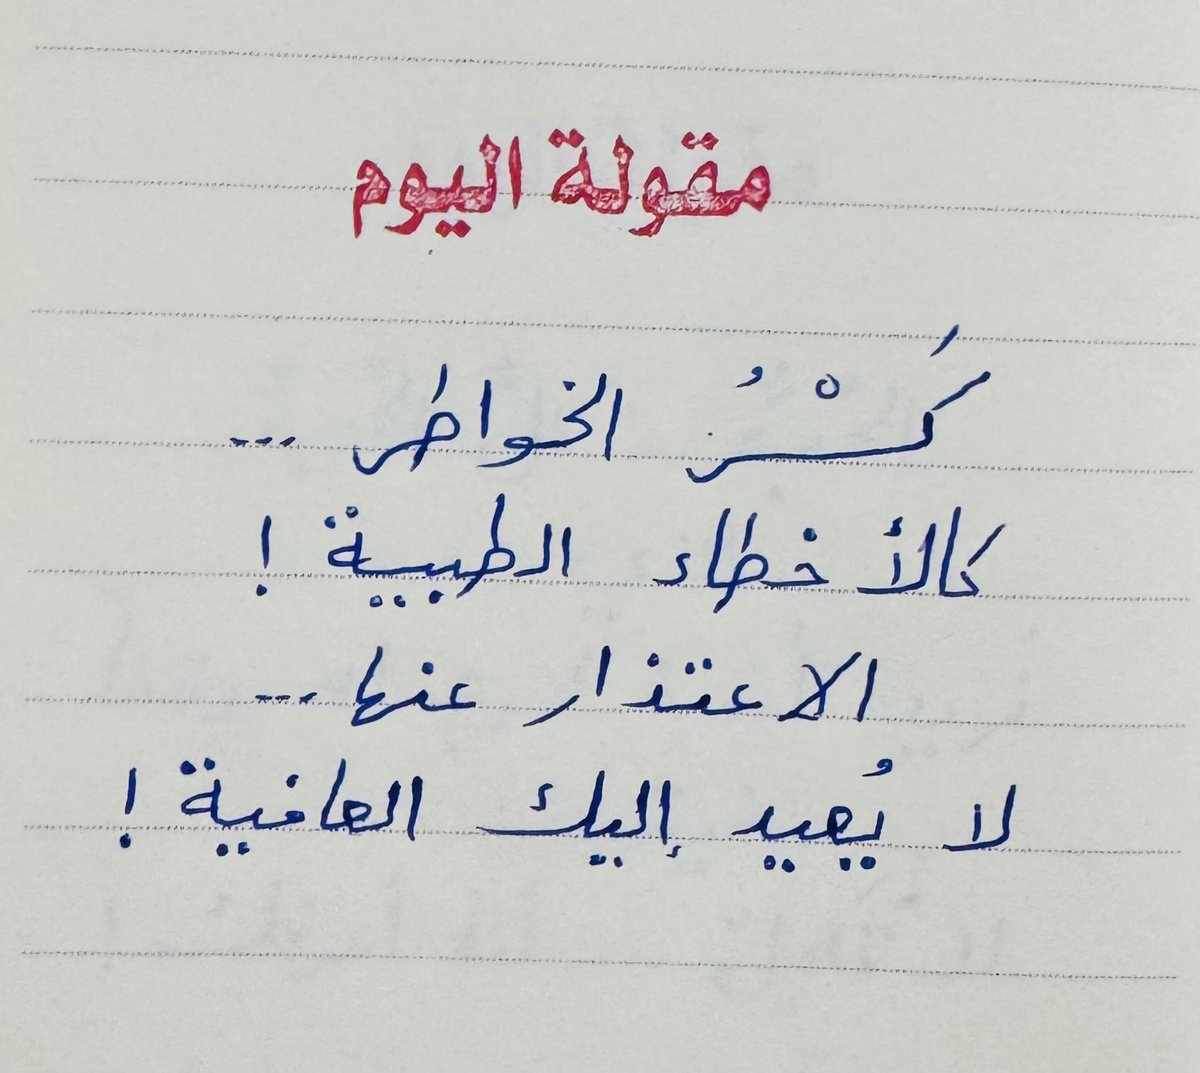 مقولة اليوم
كَسْرُ الخواطر ...
كالأخطاء الطبية !
الاعتذار عنها ...
لا يُعيد إليك العافية !